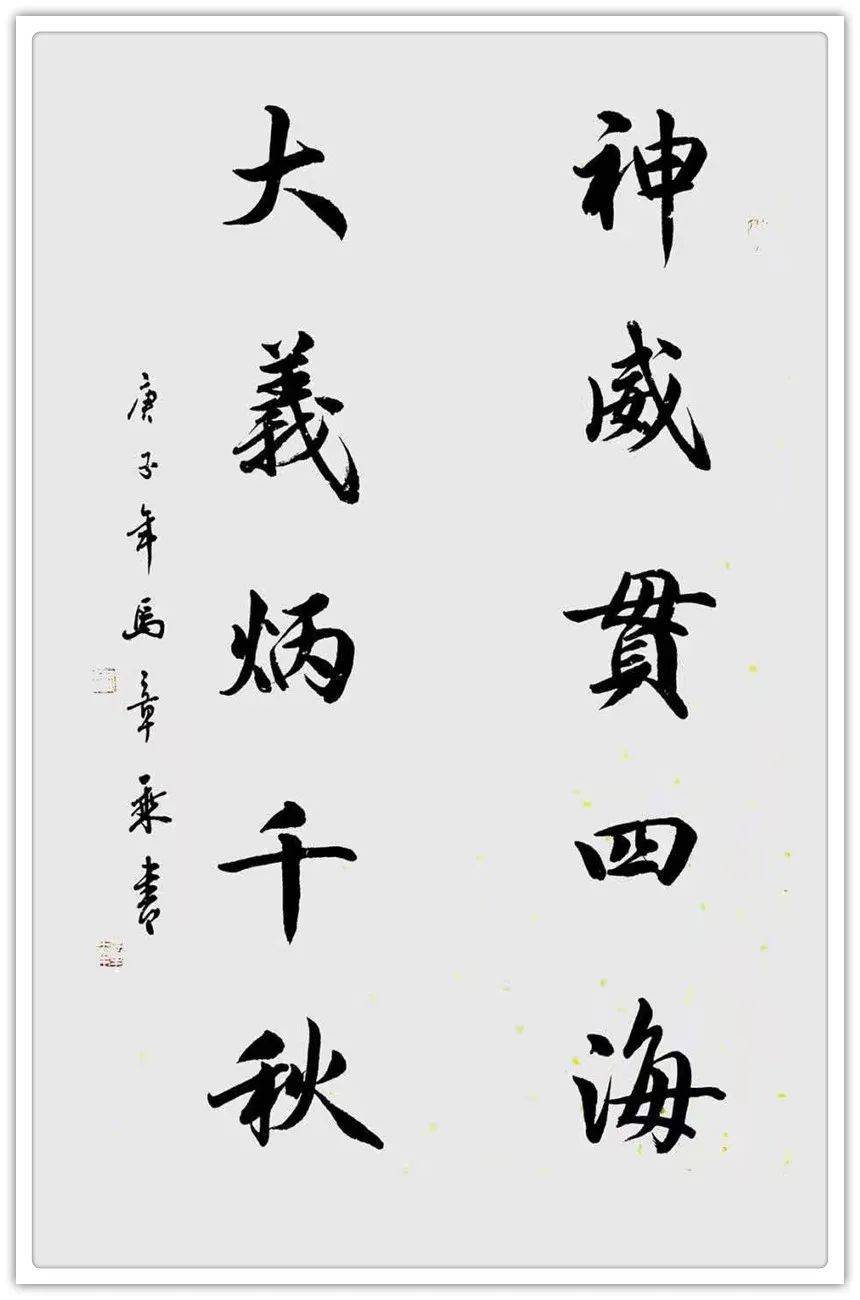 神威貫四海
大義炳千秋
庚子年馬章乘書